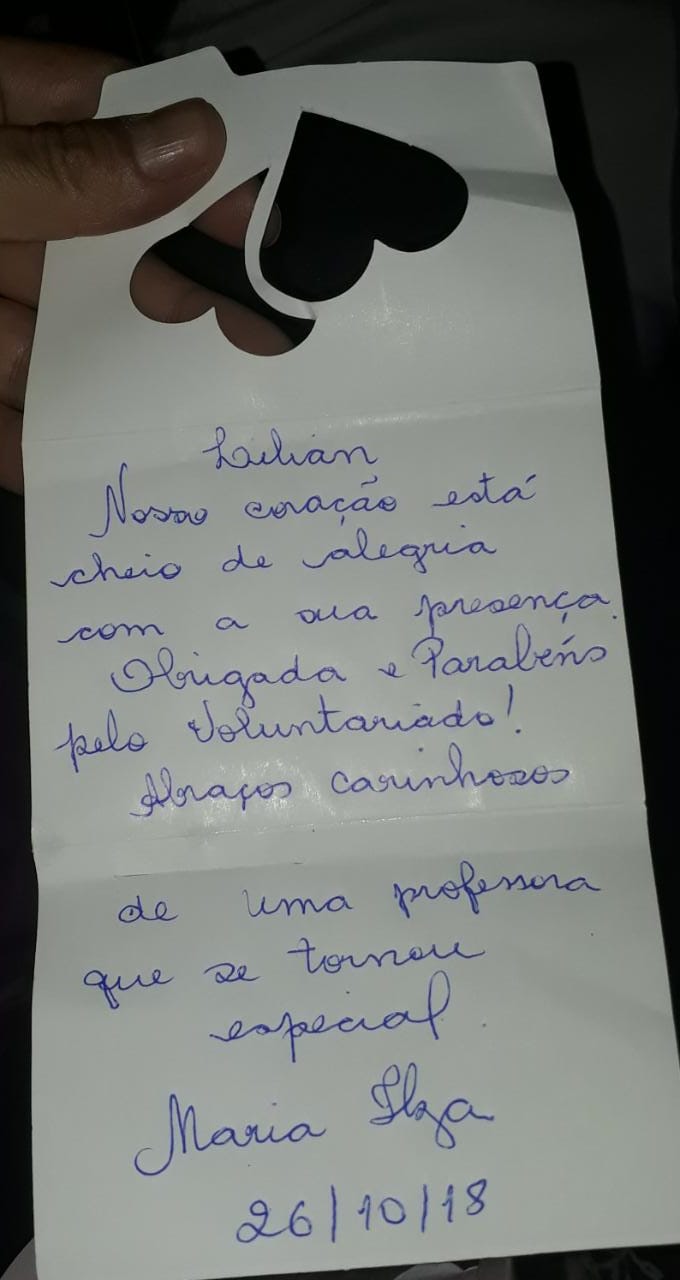 Lilian
Nosso coração está
cheio de alegria
com a sua presença.
Obrigada e Parabéns
pelo Voluntariado!
Abraços carinhosos
de uma professora
que se tornou
especial.
Maria Ilza
26/10/18